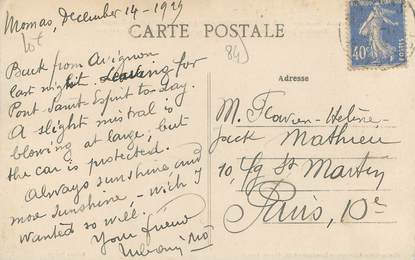 Mornas, December 14 - 1929
CARTE POSTALE
84)
Back from Avignon
last night. Leaving for
Pont Saint Esprit to-day.
A slight mistral is
blowing at large, but
the car is protected.
Always sunshine and
more sunshine, - wish I
wanted so well!
Your friend
Adresse
M. Flavien-Helène-
Jack Mathieu
10, fg St Martin
Paris, 10e
40c